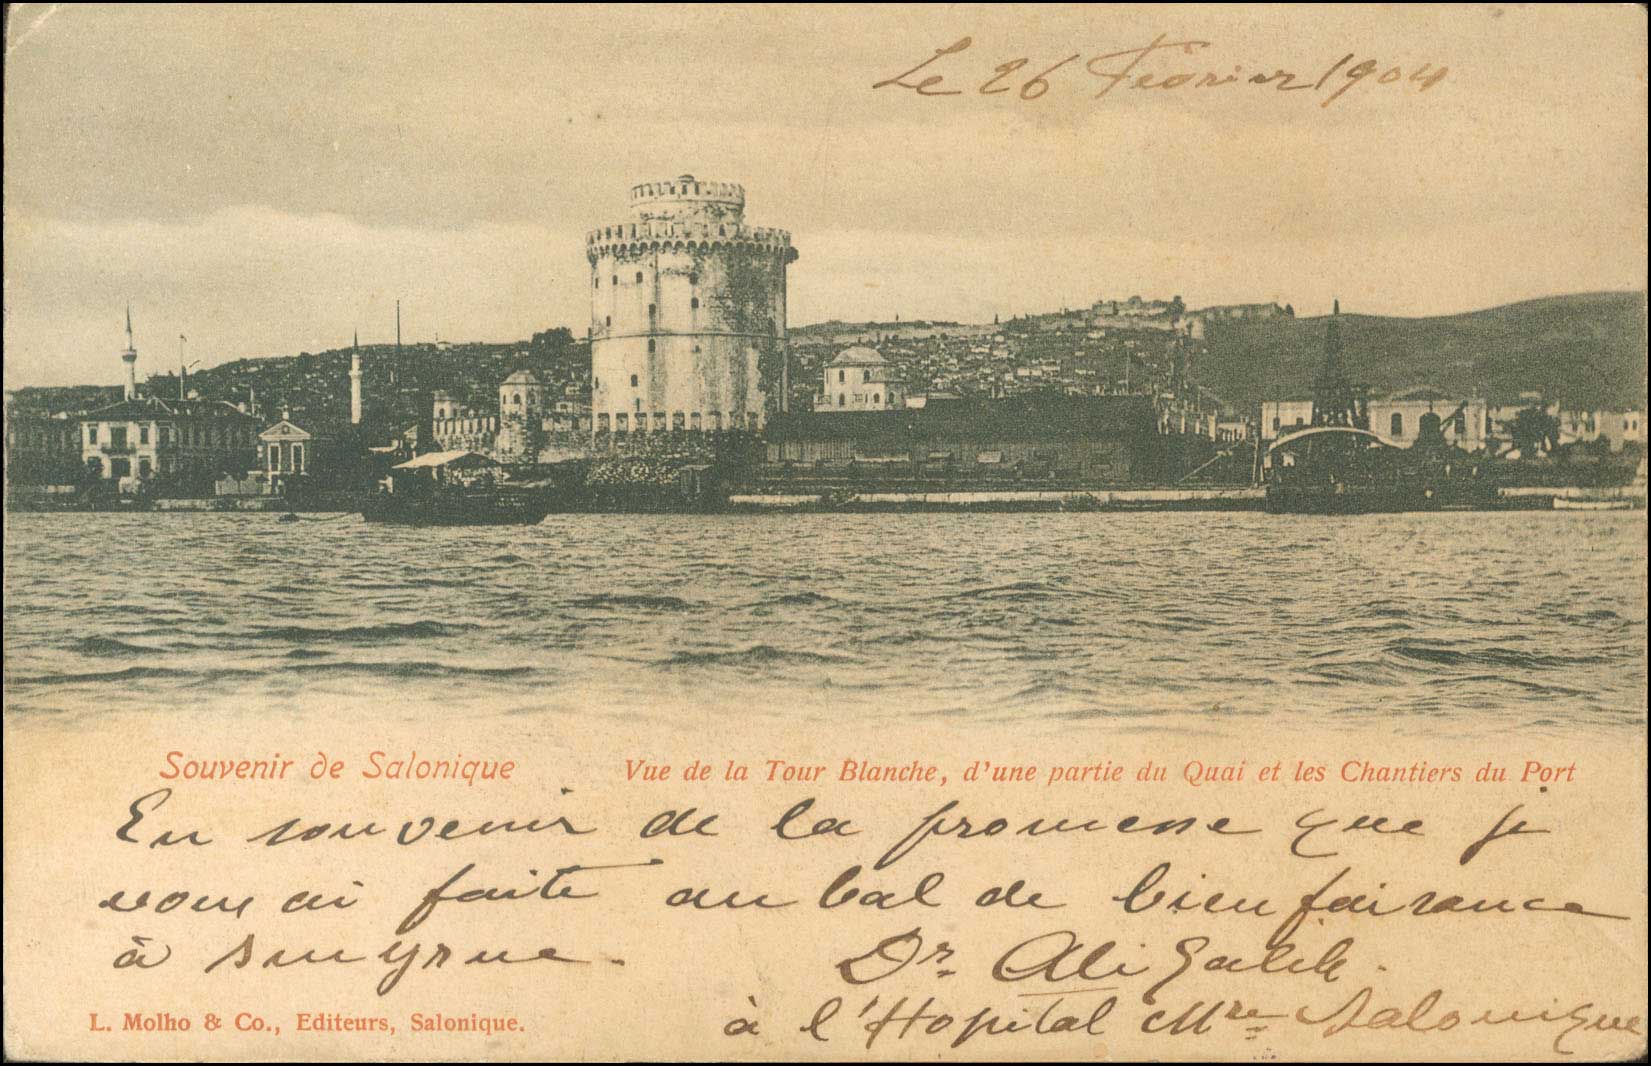 Le 26 Fevrier 1904
Souvenir de Salonique
Vue de la Tour Blanche, d'une partie du Quai et les Chantiers du Port
En souvenir de la promesse que je
vous ai faite au bal de bienfaisance
à Smyrne.
Dr. Ali Galib.
à l'Hopital Mre Salonique
L. Molho & Co., Editeurs, Salonique.